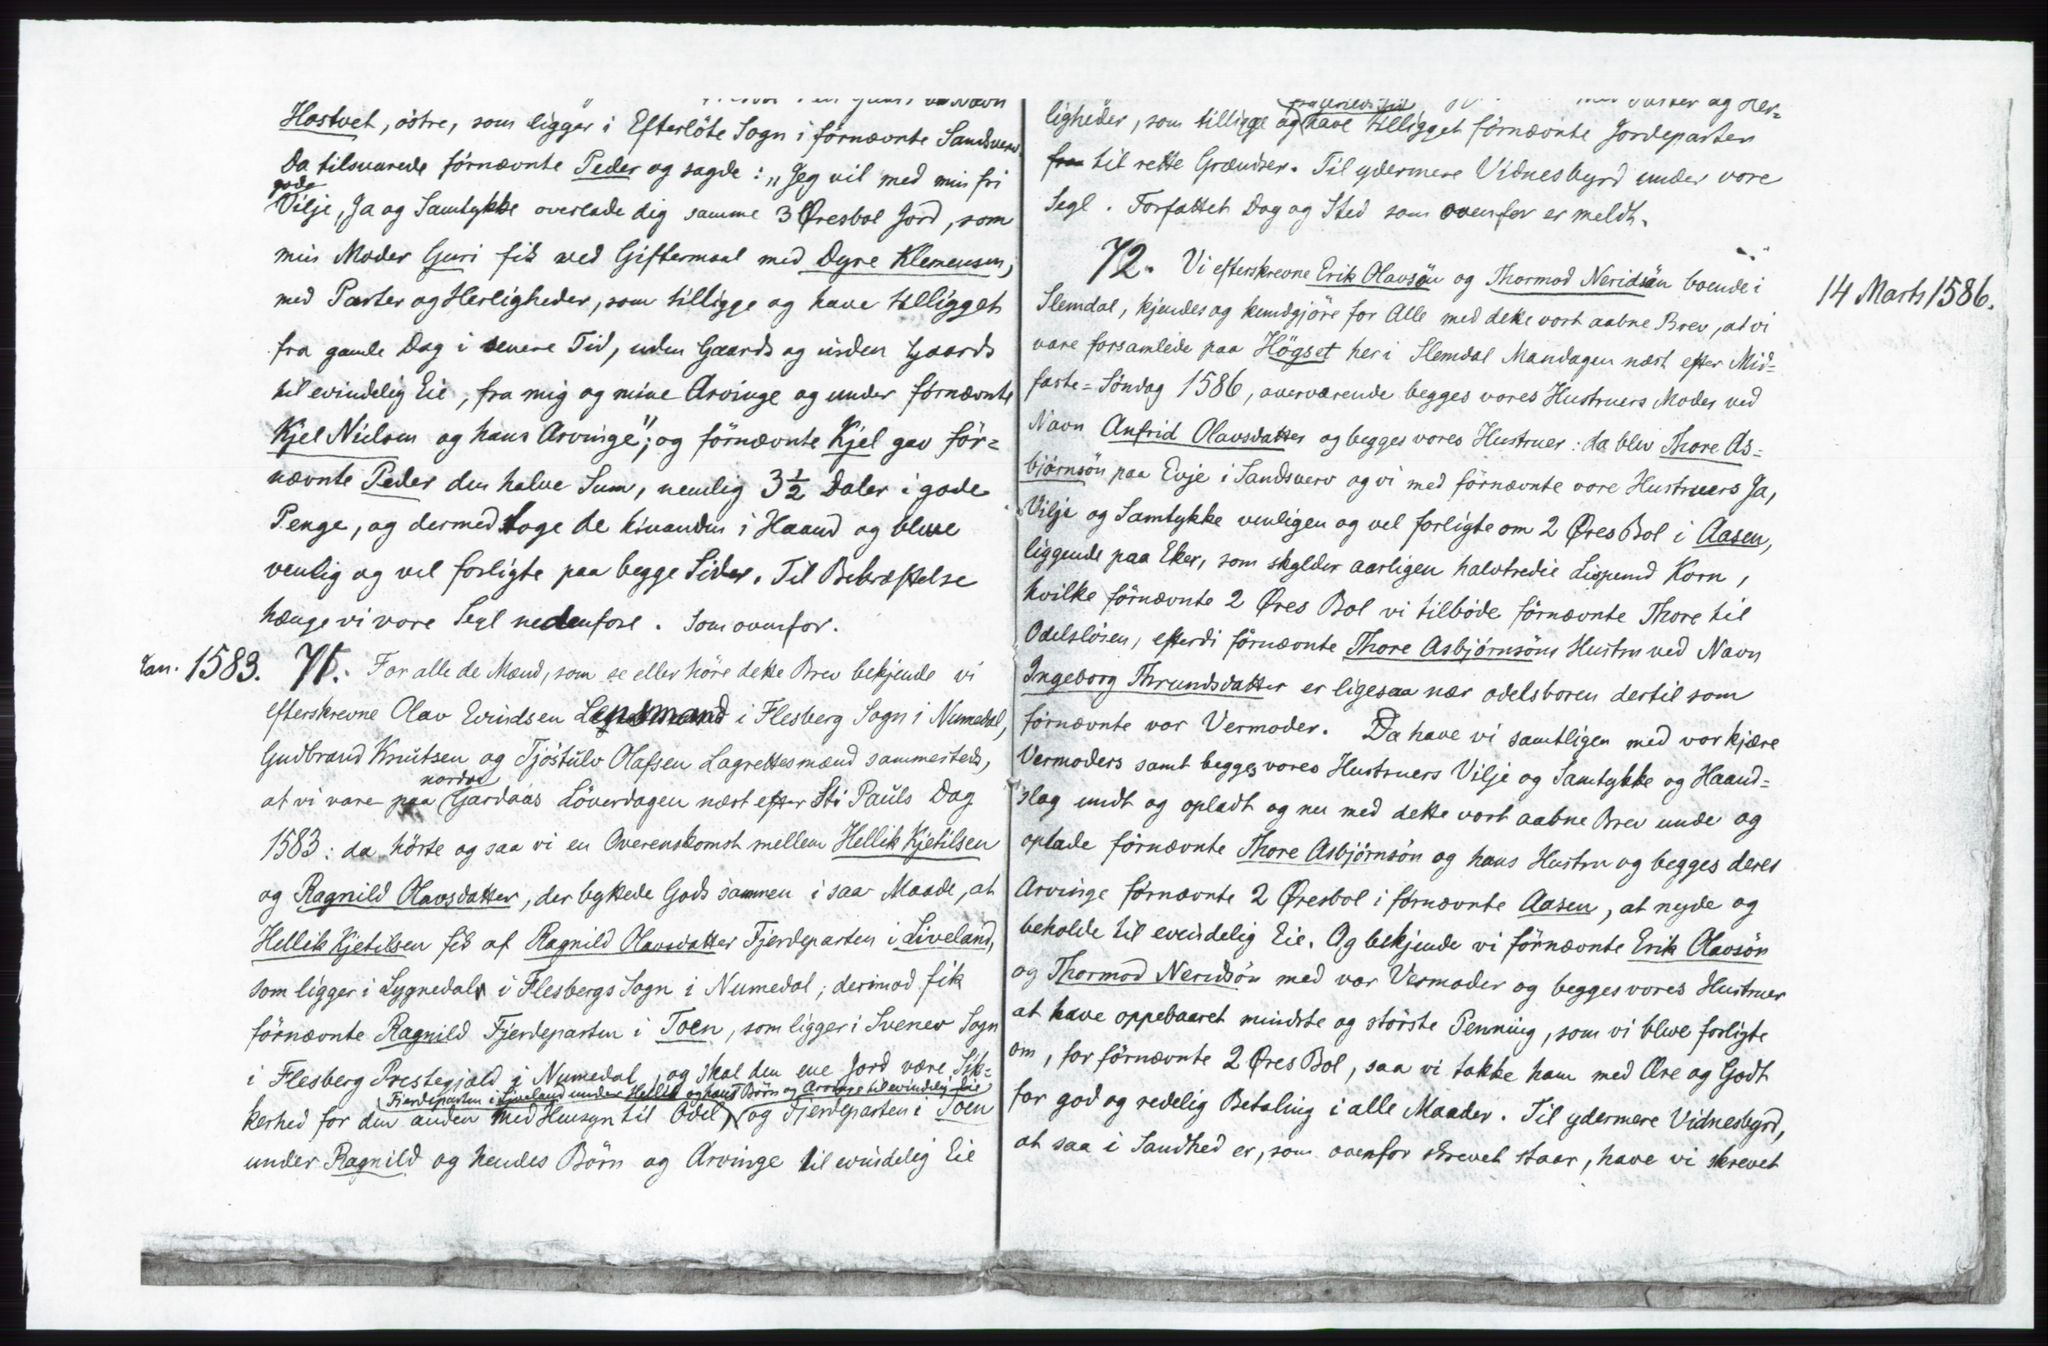 Hostvet, östre, som ligger i Efterlöte Sogn i förnævnte Sandsverv
Da tilsvarede förnævnte Peder og sagde: „Jeg vil med min fri
gode
Vilje, Ja og Samtykke overlade dig samme 3 Øresbol Jord, som
min Moder Guri fik ved Giftermaal med Dyre Klemensen,
med Parter og Herligheder, som tilligge og have tilligget
fra gamle Dag i senere Tid, uden Gaards og inden Gaards
til evindelig Eie, fra mig og mine Arvinge og under förnævnte
Kjel Nielsen og hans Arvinge"; og förnævnte Kjel gav för=
nævnte Peder den halve Sum, nemlig 3½ Daler i gode
Penge, og dermed toge de hinanden i Haand og bleve
venlig og vel forligte paa begge Sider. Til Bekræftelse
hænge vi vore Segl nedenfore. Som ovenfor.
Jan. 1583. 71. For alle de Mænd, som se eller höre dette Brev bekjende vi
efterskrevne Olav Evindsen Lensmand i Flesberg Sogn i Numedal,
Gudbrand Knutsen og Tjöstulv Olafsen Lagrettesmænd sammesteds,
nordre
at vi vare paa Gardaas Löverdagen næst efter Sti Pauls Dag
1583: da hörte og saa vi en Overenskomst mellem Hellik Kjetilsen
og Ragnild Olavsdatter, der byttede Gods sammen i saa Maade, at
Hellik Kjetilsen fik af Ragnild Olavsdatter Fjerdeparten i Liveland,
som ligger i Lygnedal i Flesbergs Sogn i Numedal; derimod fik
förnævnte Ragnild Fjerdeparten i Toen, som ligger i Svenev Sogn
i Flesberg Prestegjæld i Numedal, og skal den ene Jord være Sik=
Fjerdeparten i Liveland under Hellik og hans Börn og Arvinge til evindelig Eie
kerhed for den anden med Hensyn til Odel, og Fjerdeparten i Toen
under Ragnild og hendes Börn og Arvinge til evindelig Eie
ligheder, som tilligge og have tilligget förnævnte Jordeparter
fra til rette Grændser. Til ydermere Vidnesbyrd under vore
Segl. Forfattet Dag og Sted som ovenfor er meldt.
72. Vi efterskrevne Erik Olavsön og Thormod Neridsön boende i
14 Marts 1586.
Slemdal, kjendes og kundgjöre for Alle med dette vort aabne Brev, at vi
vare forsamlede paa Högset her i Slemdal Mandagen næst efter Mid=
faste=Söndag 1586, overværende begges vores Hustruers Moder ved
Navn Anfrid Olavsdatter og begges vores Hustruer: da blev Thore As=
björnsön paa Evje i Sandsverv og vi med förnævnte vore Hustruers Ja,
Vilje og Samtykke venligen og vel forligte om 2 Øres Bol i Aasen,
liggende paa Eker, som skylder aarligen halvtredie Lispund Korn,
hvilke förnævnte 2 Øres Bol vi tilböde förnævnte Thore til
Odelslösen, efterdi förnævnte Thore Asbjörnsöns Hustru ved Navn
Ingeborg Thrundsdatter er ligesaa nær odelsboren dertil som
förnævnte vor Vermoder. Da have vi samtligen med vor kjære
Vermoders samt begges vores Hustruers Vilje og Samtykke og Haand=
slag undt og opladt og nu med dette vort aabne Brev unde og
oplade förnævnte Thore Asbjörnsön og hans Hustru og begges deres
Arvinge förnævnte 2 Øresbol i förnævnte Aasen, at nyde og
beholde til evindelig Eie. Og bekjende vi förnævnte Erik Olavsön
og Thormod Neridsön med vor Vermoder og begges vores Hustruer
at have oppebaaret mindste og störste Penning, som vi bleve forligte
om, for förnævnte 2 Øres Bol, saa vi takke ham med Ære og Godt
for god og redelig Betaling i alle Maader. Til ydermere Vidnesbyrd,
at saa i Sandhed er, som ovenfor skrevet staar, have vi skrevet